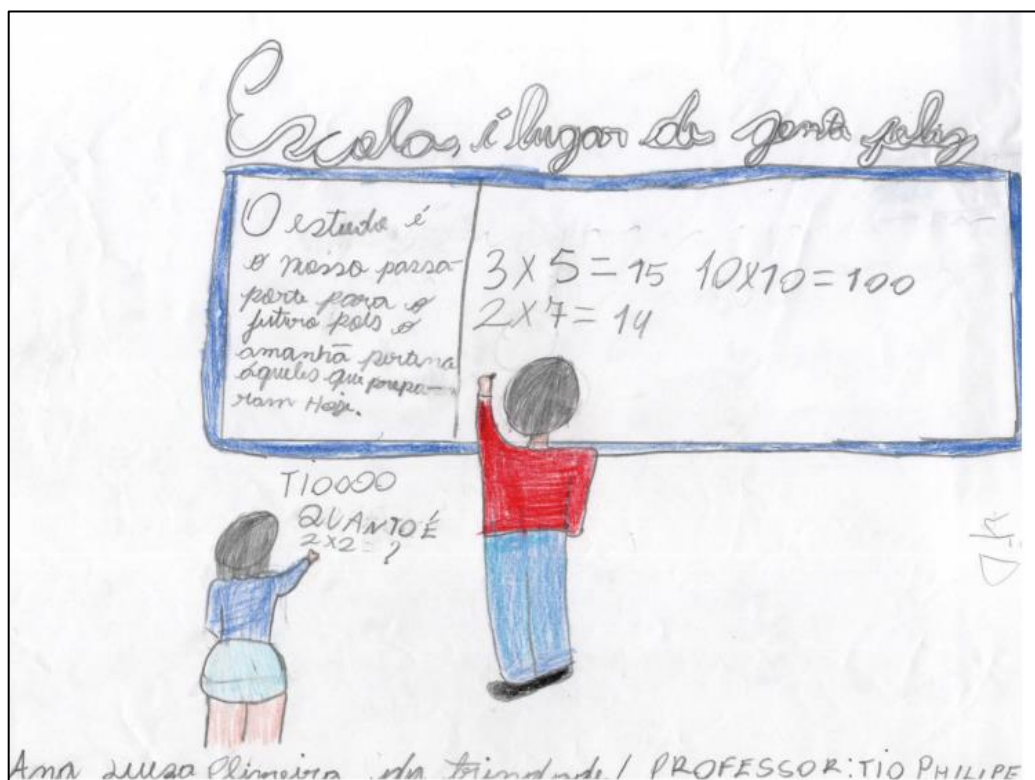 Escola, é lugar de gente feliz
O estudo é
o nosso passa-
porte para o
futuro pois o
amanhã pertence
áqueles que prepa-
ram Hoje.
3 X 5 = 15 10X10 = 100
2 X 7 = 14
TIOOOO
QUANTO É
2 X 2 = ?
Ana Luiza Oliveira da trindade / PROFESSOR: TIO PHILIPE